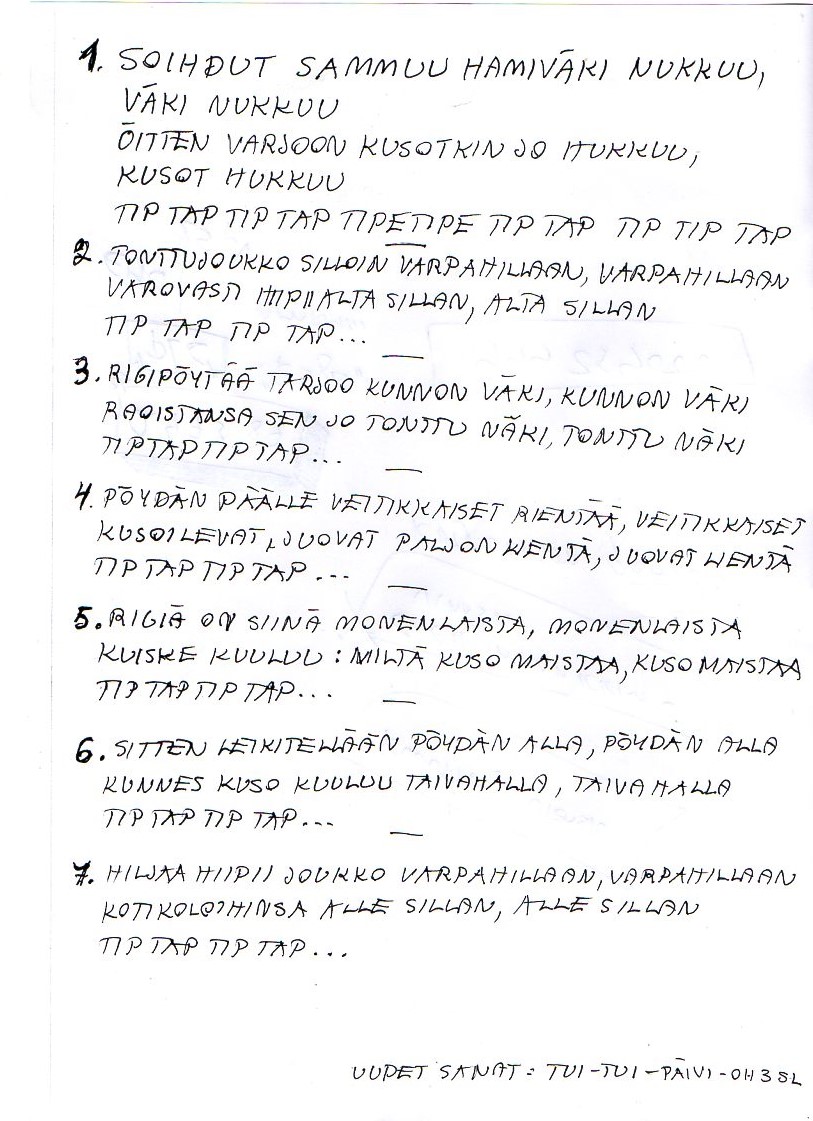 1. SOIHDUT SAMMUU HAMIVÄKI NUKKUU,
VÄKI NUKKUU
ÖITTEN VARJOON KUSOTKIN JO HUKKUU,
KUSOT HUKKUU
TIP TAP TIP TAP TIPETIPE TIP TAP TIP TIP TAP
2. TONTTUJOUKKO SILLOIN VARPAHILLAAN, VARPAHILLAAN
VAROVASTI HIIPII ALTA SILLAN, ALTA SILLAN
TIP TAP TIP TAP...
3. RIGIPÖYTÄÄ TARJOO KUNNON VÄKI, KUNNON VÄKI
RAOISTANSA SEN JO TONTTU NÄKI, TONTTU NÄKI
TIP TAP TIP TAP...
4. PÖYDÄN PÄÄLLE VEITIKKAISET RIENTÄÄ, VEITIKKAISET
KUSOILEVAT, JUOVAT PALJON LIENTÄ, JUOVAT LIENTÄ
TIP TAP TIP TAP...
5. RIGIÄ ON SIINÄ MONENLAISTA, MONENLAISTA
KUISKE KUULUU: MILTÄ KUSO MAISTAA, KUSO MAISTAA
TIP TAP TIP TAP...
6. SITTEN LEIKITELLÄÄN PÖYDÄN ALLA, PÖYDÄN ALLA
KUNNES KUSO KUULUU TAIVAHALLA, TAIVAHALLA
TIP TAP TIP TAP...
7. HILJAA HIIPII JOUKKO VARPAHILLAAN, VARPAHILLAAN
KOTIKOLOIHINSA ALLE SILLAN, ALLE SILLAN
TIP TAP TIP TAP...
UUDET SANAT: TUI-TUI-PÄIVI-OH3SL